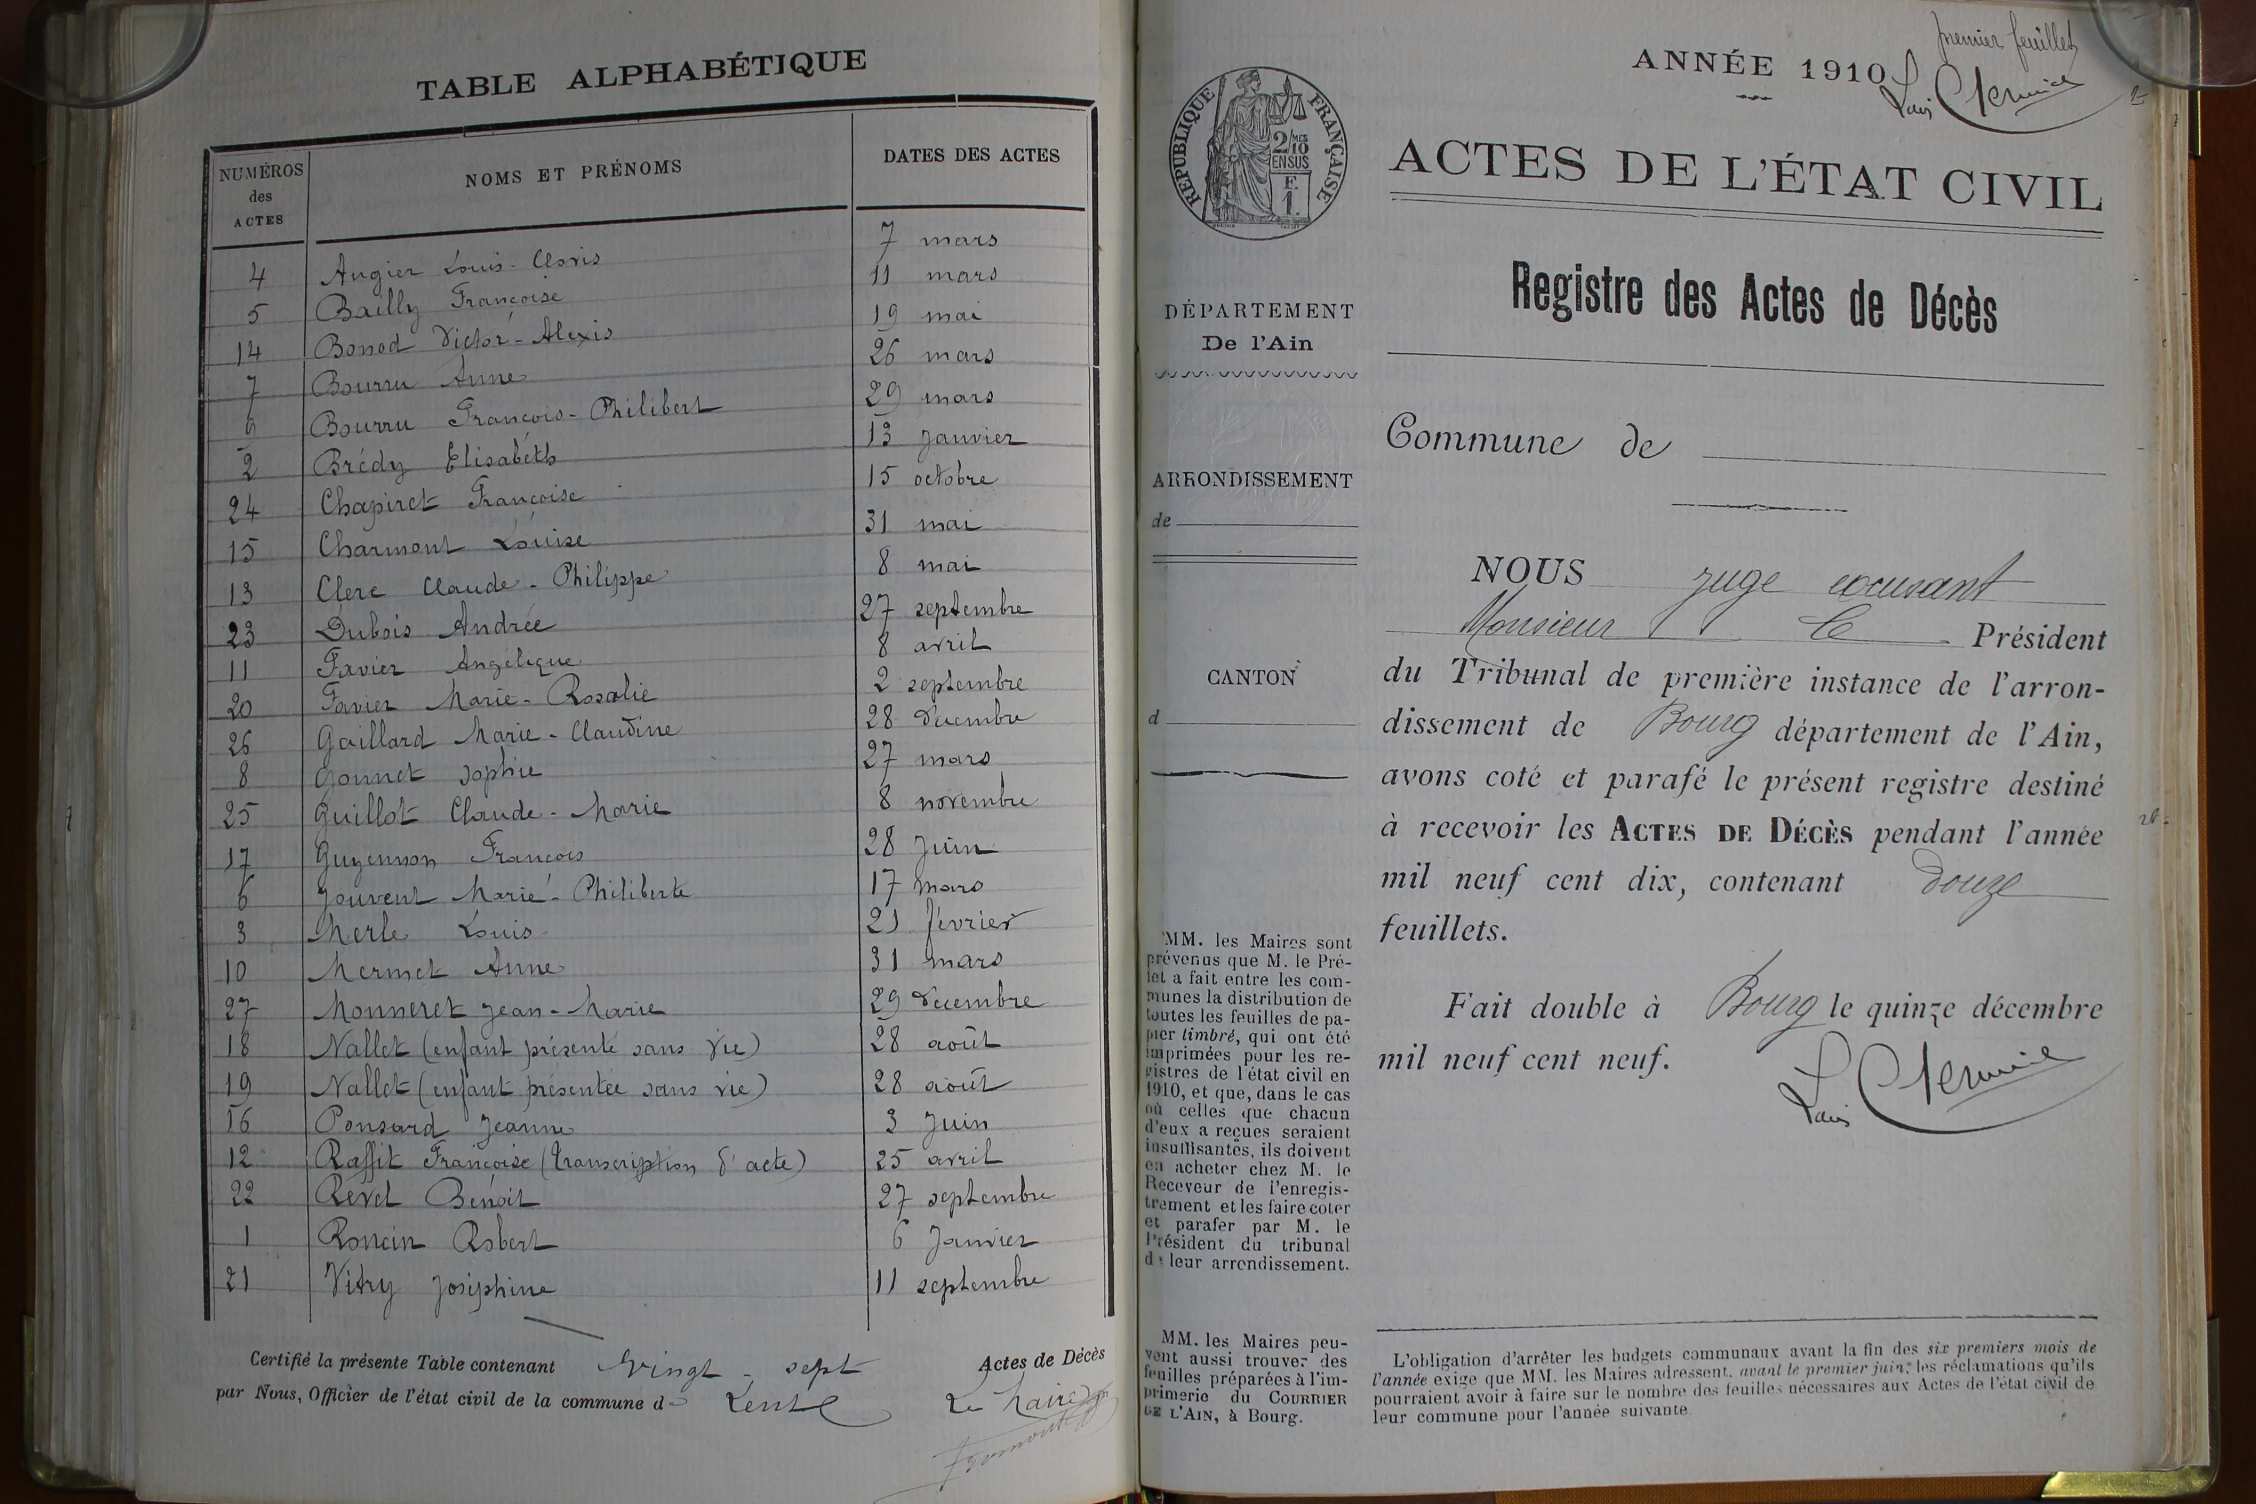 TABLE ALPHABÉTIQUE
NUMÉROS des ACTES NOMS ET PRÉNOMS DATES DES ACTES
4 Augier Louis-Clovis 7 mars
5 Bailly Françoise 11 mars
14 Bonod Victor-Alexis 19 mai
7 Bourru Anne 26 mars
9 Bourru François-Philibert 29 mars
2 Brédy Elisabéth 13 Janvier
24 Chapiret Françoise 15 octobre
15 Charmont Louise 31 mai
13 Clerc Claude-Philippe 8 mai
23 Dubois Andrée 27 septembre
11 Favier Angélique 8 avril
20 Favier Marie-Rosalie 2 septembre
26 Gaillard Marie-Claudine 28 décembre
8 Gonnet Sophie 27 mars
25 Guillot Claude-Marie 8 novembre
17 Guyennon François 28 Juin
6 Jouvent Marie-Philiberte 17 mars
3 Merle Louis 21 février
10 Mermet Anne 31 mars
27 Monneret Jean-Marie 29 décembre
18 Nallet (enfant présenté sans vie) 28 août
19 Nallet (enfant présentée sans vie) 28 août
16 Ponsard Jeanne 3 Juin
12 Raffit Françoise (transcription d'acte) 25 avril
22 Revel Benoit 27 septembre
1 Roncin Robert 6 Janvier
21 Vitry Joséphine 11 septembre
Certifié la présente Table contenant Vingt-sept Actes de Décès
par Nous, Officier de l'état civil de la commune d
Le Maire
premier feuillet
ANNÉE 1910
RÉPUBLIQUE FRANÇAISE
2/10
EN SUS
F.
1.
ACTES DE L'ÉTAT CIVIL
Registre des Actes de Décès
DÉPARTEMENT
De l'Ain
ARRONDISSEMENT
de
CANTON
d
MM. les Maires sont
prévenus que M. le Pré-
fet a fait entre les com-
munes la distribution de
toutes les feuilles de pa-
pier timbré, qui ont été
imprimées pour les re-
gistres de l'état civil en
1910, et que, dans le cas
où celles que chacun
d'eux a reçues seraient
insuffisantes, ils doivent
en acheter chez M. le
Receveur de l'enregis-
trement et les faire coter
et parafer par M. le
Président du tribunal
de leur arrondissement.
MM. les Maires peu-
vent aussi trouver des
feuilles préparées à l'im-
primerie du COURRIER
DE L'AIN, à Bourg.
Commune de
NOUS juge
Monsieur le Président
du Tribunal de première instance de l'arron-
dissement de Bourg département de l'Ain,
avons coté et parafé le présent registre destiné
à recevoir les ACTES DE DÉCÈS pendant l'année
mil neuf cent dix, contenant douze
feuillets.
Fait double à Bourg le quinze décembre
mil neuf cent neuf.
L'obligation d'arrêter les budgets communaux avant la fin des six premiers mois de
l'année exige que MM. les Maires adressent, avant le premier juin, les réclamations qu'ils
pourraient avoir à faire sur le nombre des feuilles nécessaires aux Actes de l'état civil de
leur commune pour l'année suivante.